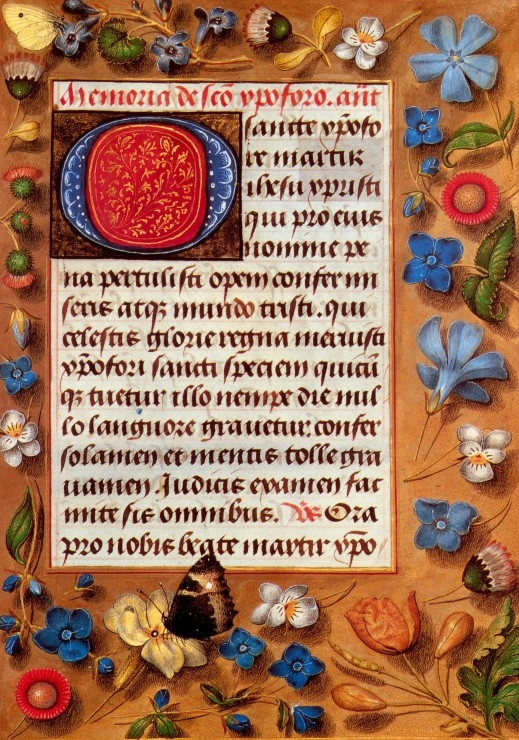 Memoria de sco xpoforo. ant
O sancte xpofo
re martir
ihesu xpristi
qui pro eius
nomine pe
na pertulisti opem confer mi
seris atqz mundo tristi. qui
celestis glorie regna meruisti
xpofori sancti speciem quicu
qz tuetur illo nempe die nul
lo languore grauetur: confer
solamen et mentis tolle gra
uamen Judicis examen fac
mite sis omnibus. Vs Ora
pro nobis beate martir xpo